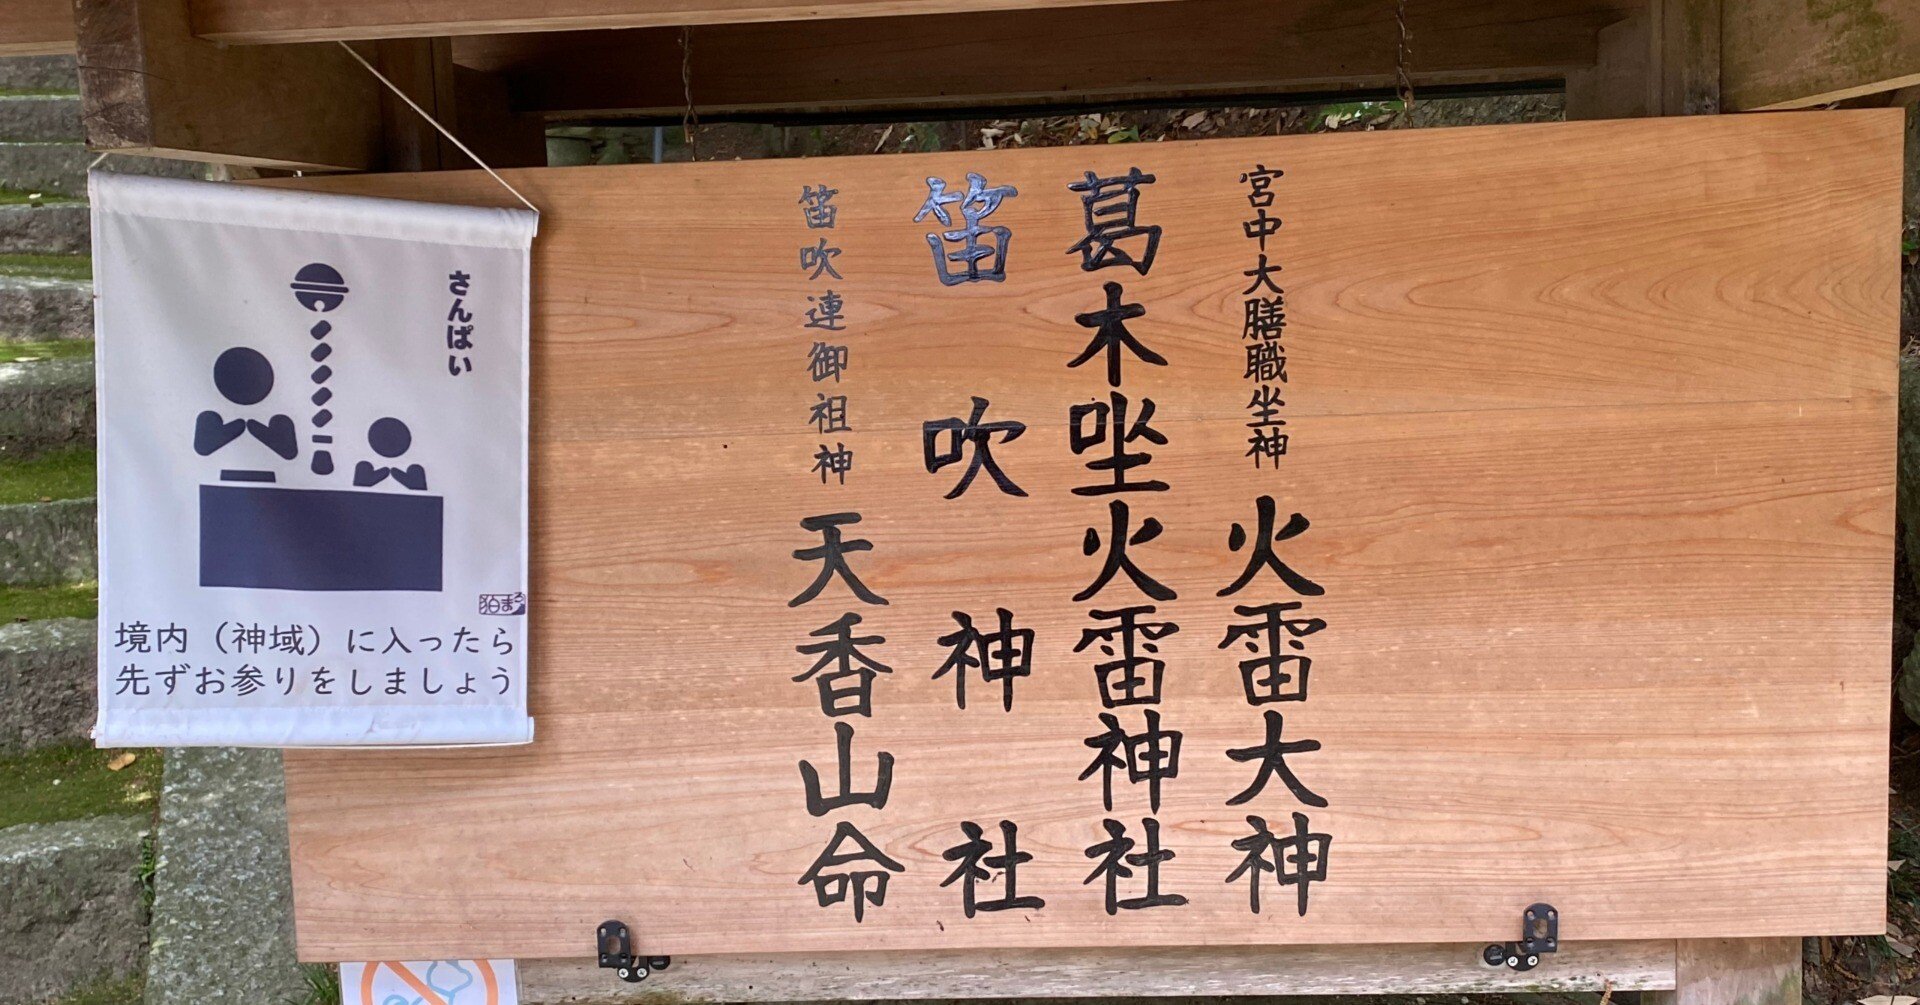 宮中大膳職坐神 火雷大神
葛木坐火雷神社
笛吹神社
笛吹連御祖神 天香山命
さんぱい
境内（神域）に入ったら
先ずお参りをしましょう